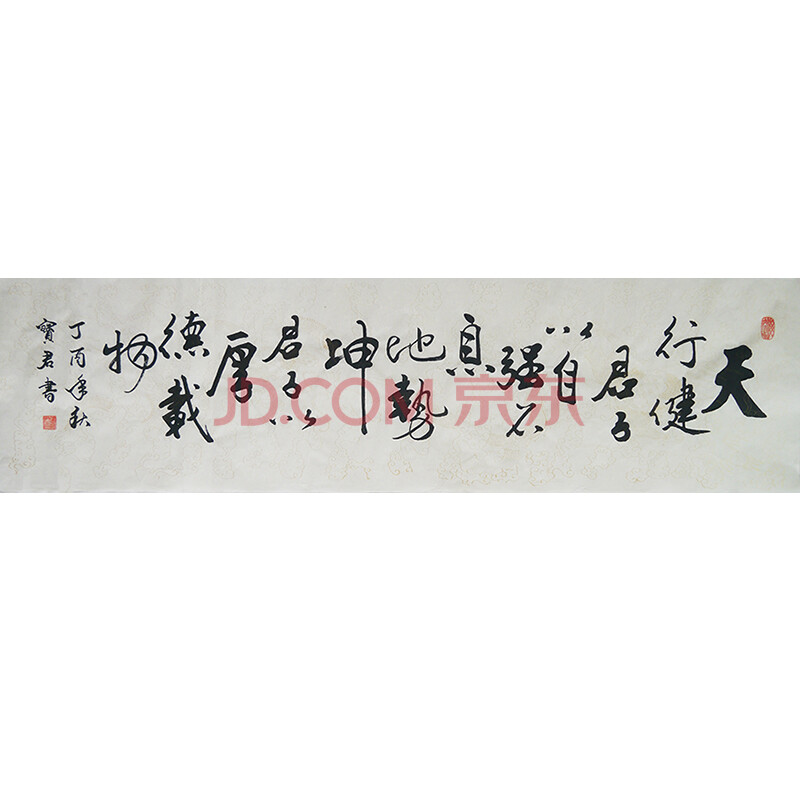 天
行健
君子
以自
强不
息
地勢
坤
君子以
厚
德載
物
丁酉年秋
寶君書
JD.COM 京东